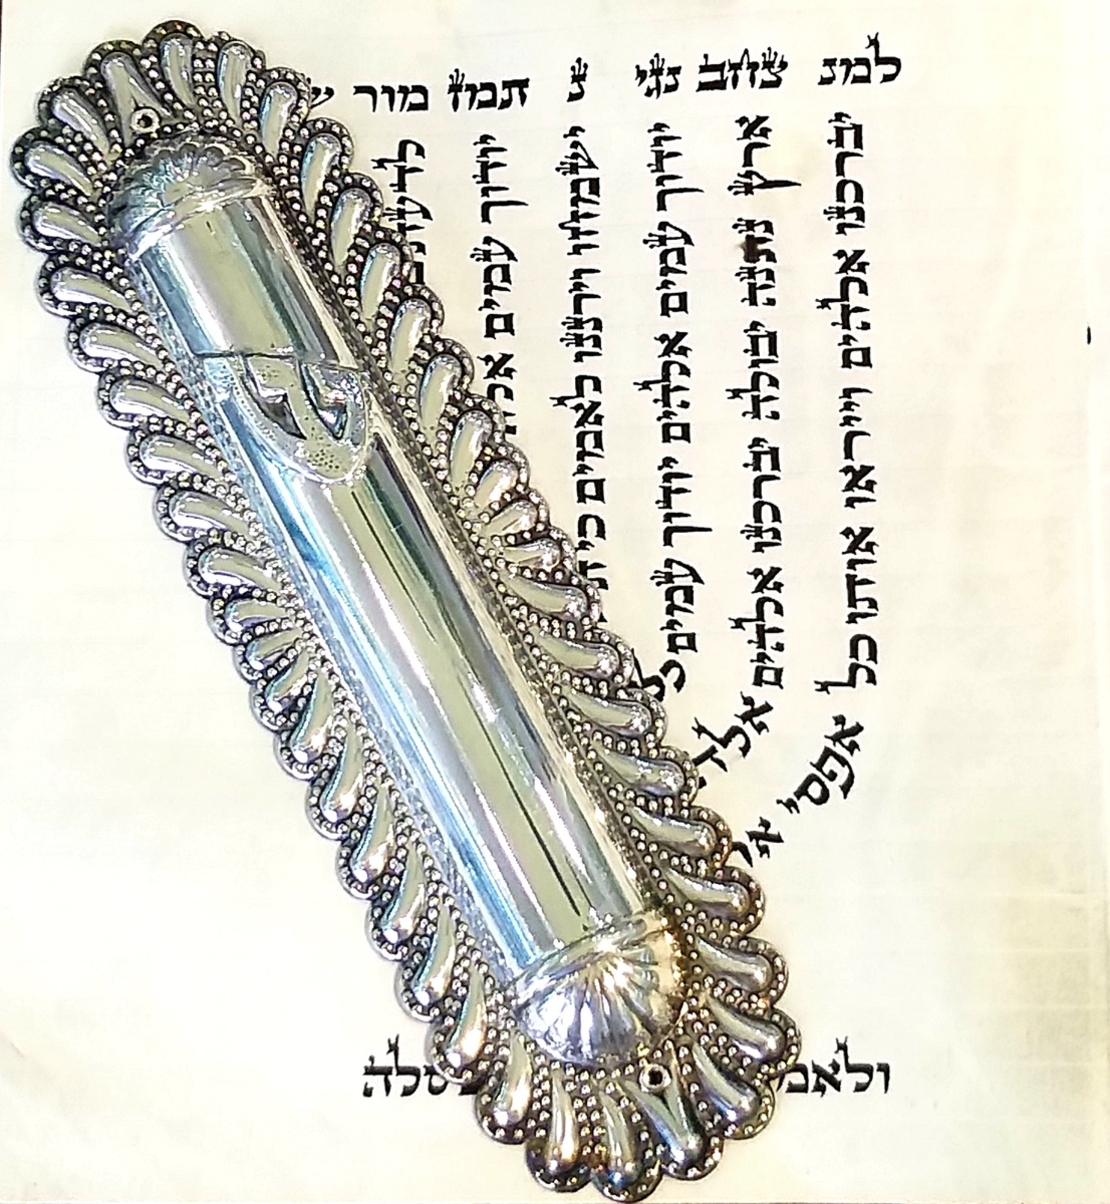 למנ צחב נגי נ תמז מור ש
יברכנו אלהים וייראו אותו כל אפסי
ארץ נתנה יבולה יברכנו אלהים אלה
יודוך עמים אלהים יודוך עמים כל
ישמחו וירננו לאמים כי ת
יודוך עמים אל
לדעת
ולאמ סלה